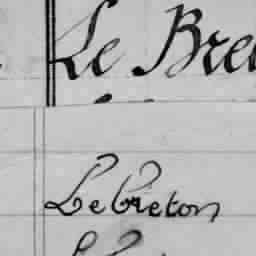 Le Bre
Le Breton